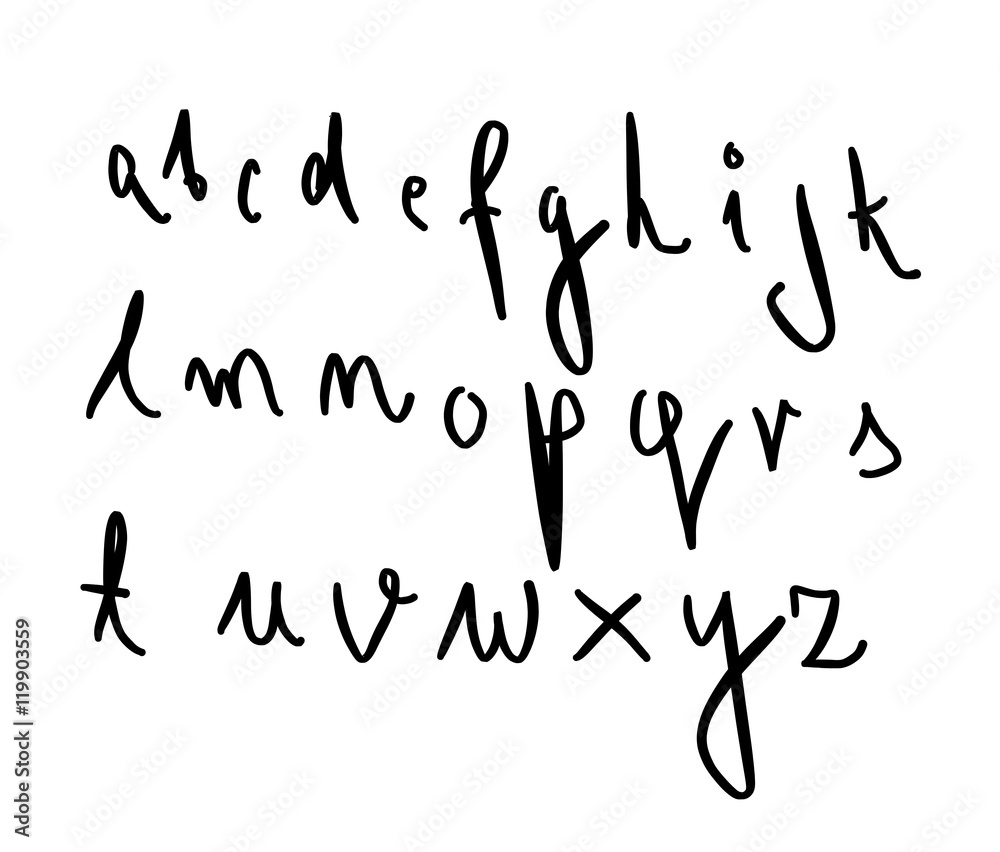 a b c d e f g h i j k
l m n o p q r s
t u v w x y z
Adobe Stock | #119903559